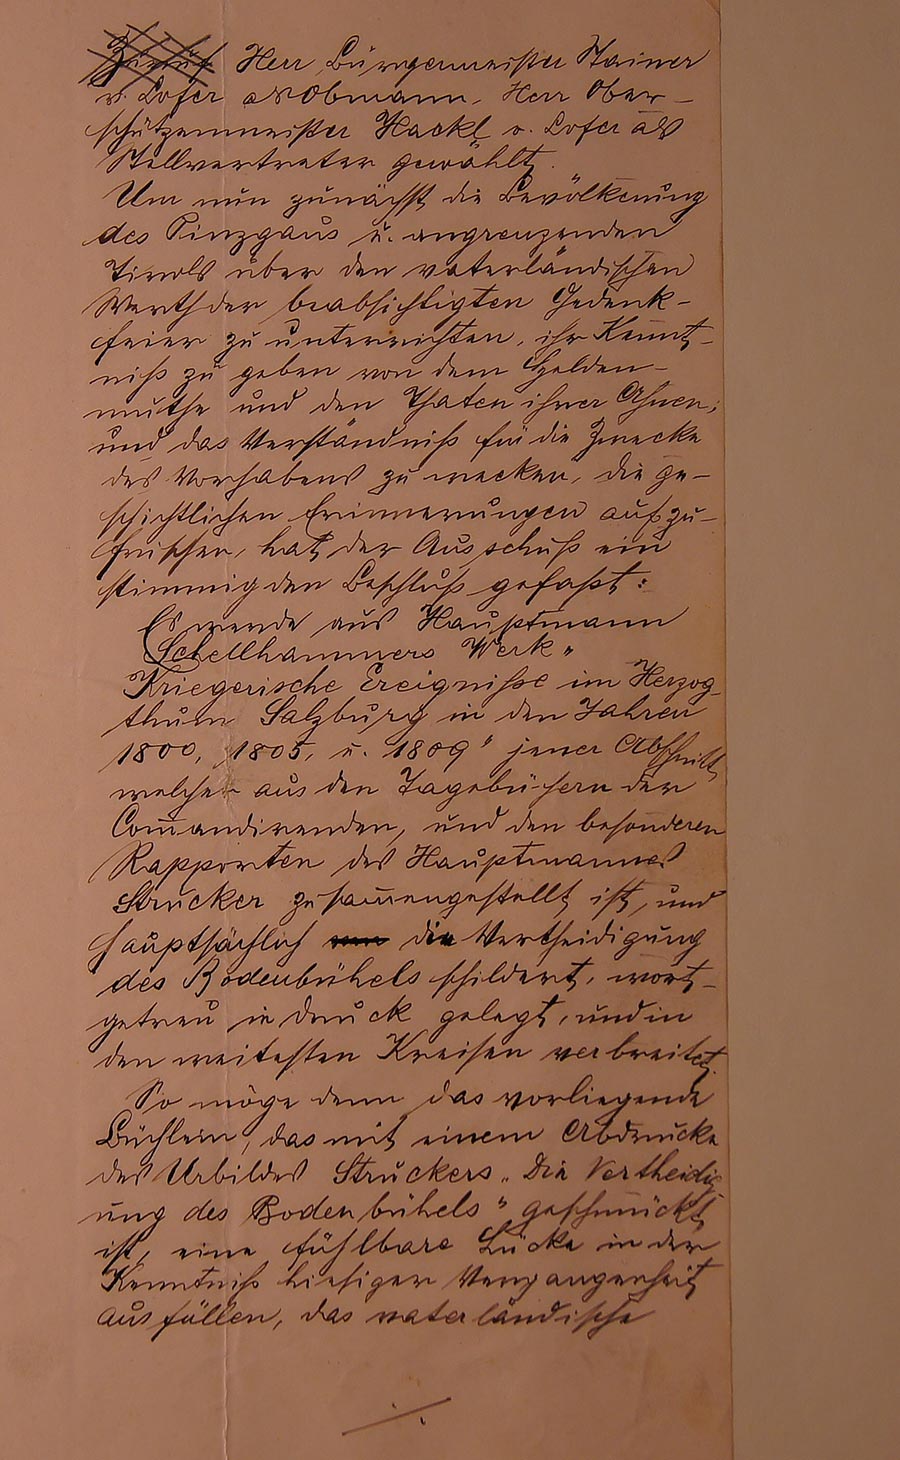 Herr Bürgermeister Stainer
v. Lofer als Obmann, Herr Ober-
schützenmeister Hackl v. Lofer als
Stellvertreter gewählt.
Um nun zunächst die Bevölkerung
des Pinzgaus u. angrenzenden
Tirols über den vaterländischen
Werth der beabsichtigten Gedenk-
feier zu unterrichten, ihr Kennt-
niß zu geben von dem Helden-
muthe und den Thaten ihrer Ahnen,
und das Verständniß für die Zwecke
des Vorhabens zu wecken, die ge-
schichtlichen Erinnerungen aufzu-
frischen, hat der Ausschuß ein
stimmig den Beschluß gefaßt:
Es werde aus Hauptmann
Schellhammers Werk „
Kriegerische Ereigniße im Herzog-
thum Salzburg in den Jahren
1800, 1805, u. 1809" jener Abschnitt,
welcher aus den Tagebüchern der
Com̅andirenden, und den besonderen
Rapporten des Hauptmannes
Strucker zusam̅engestellt ist, und
hauptsächlich die Vertheidigung
des Bodenbühels schildert, wort-
getreu in Druck gelegt, und in
den weitesten Kreisen verbreitet.
So möge denn das vorliegende
Büchlein, das mit einem Abdrucke
des Urbildes Struckers „Die Vertheidig-
ung des Bodenbühels" geschmückt
ist, eine fühlbare Lücke in der
Kenntniß hiesiger Vergangenheit
ausfüllen, das vaterländische
./.